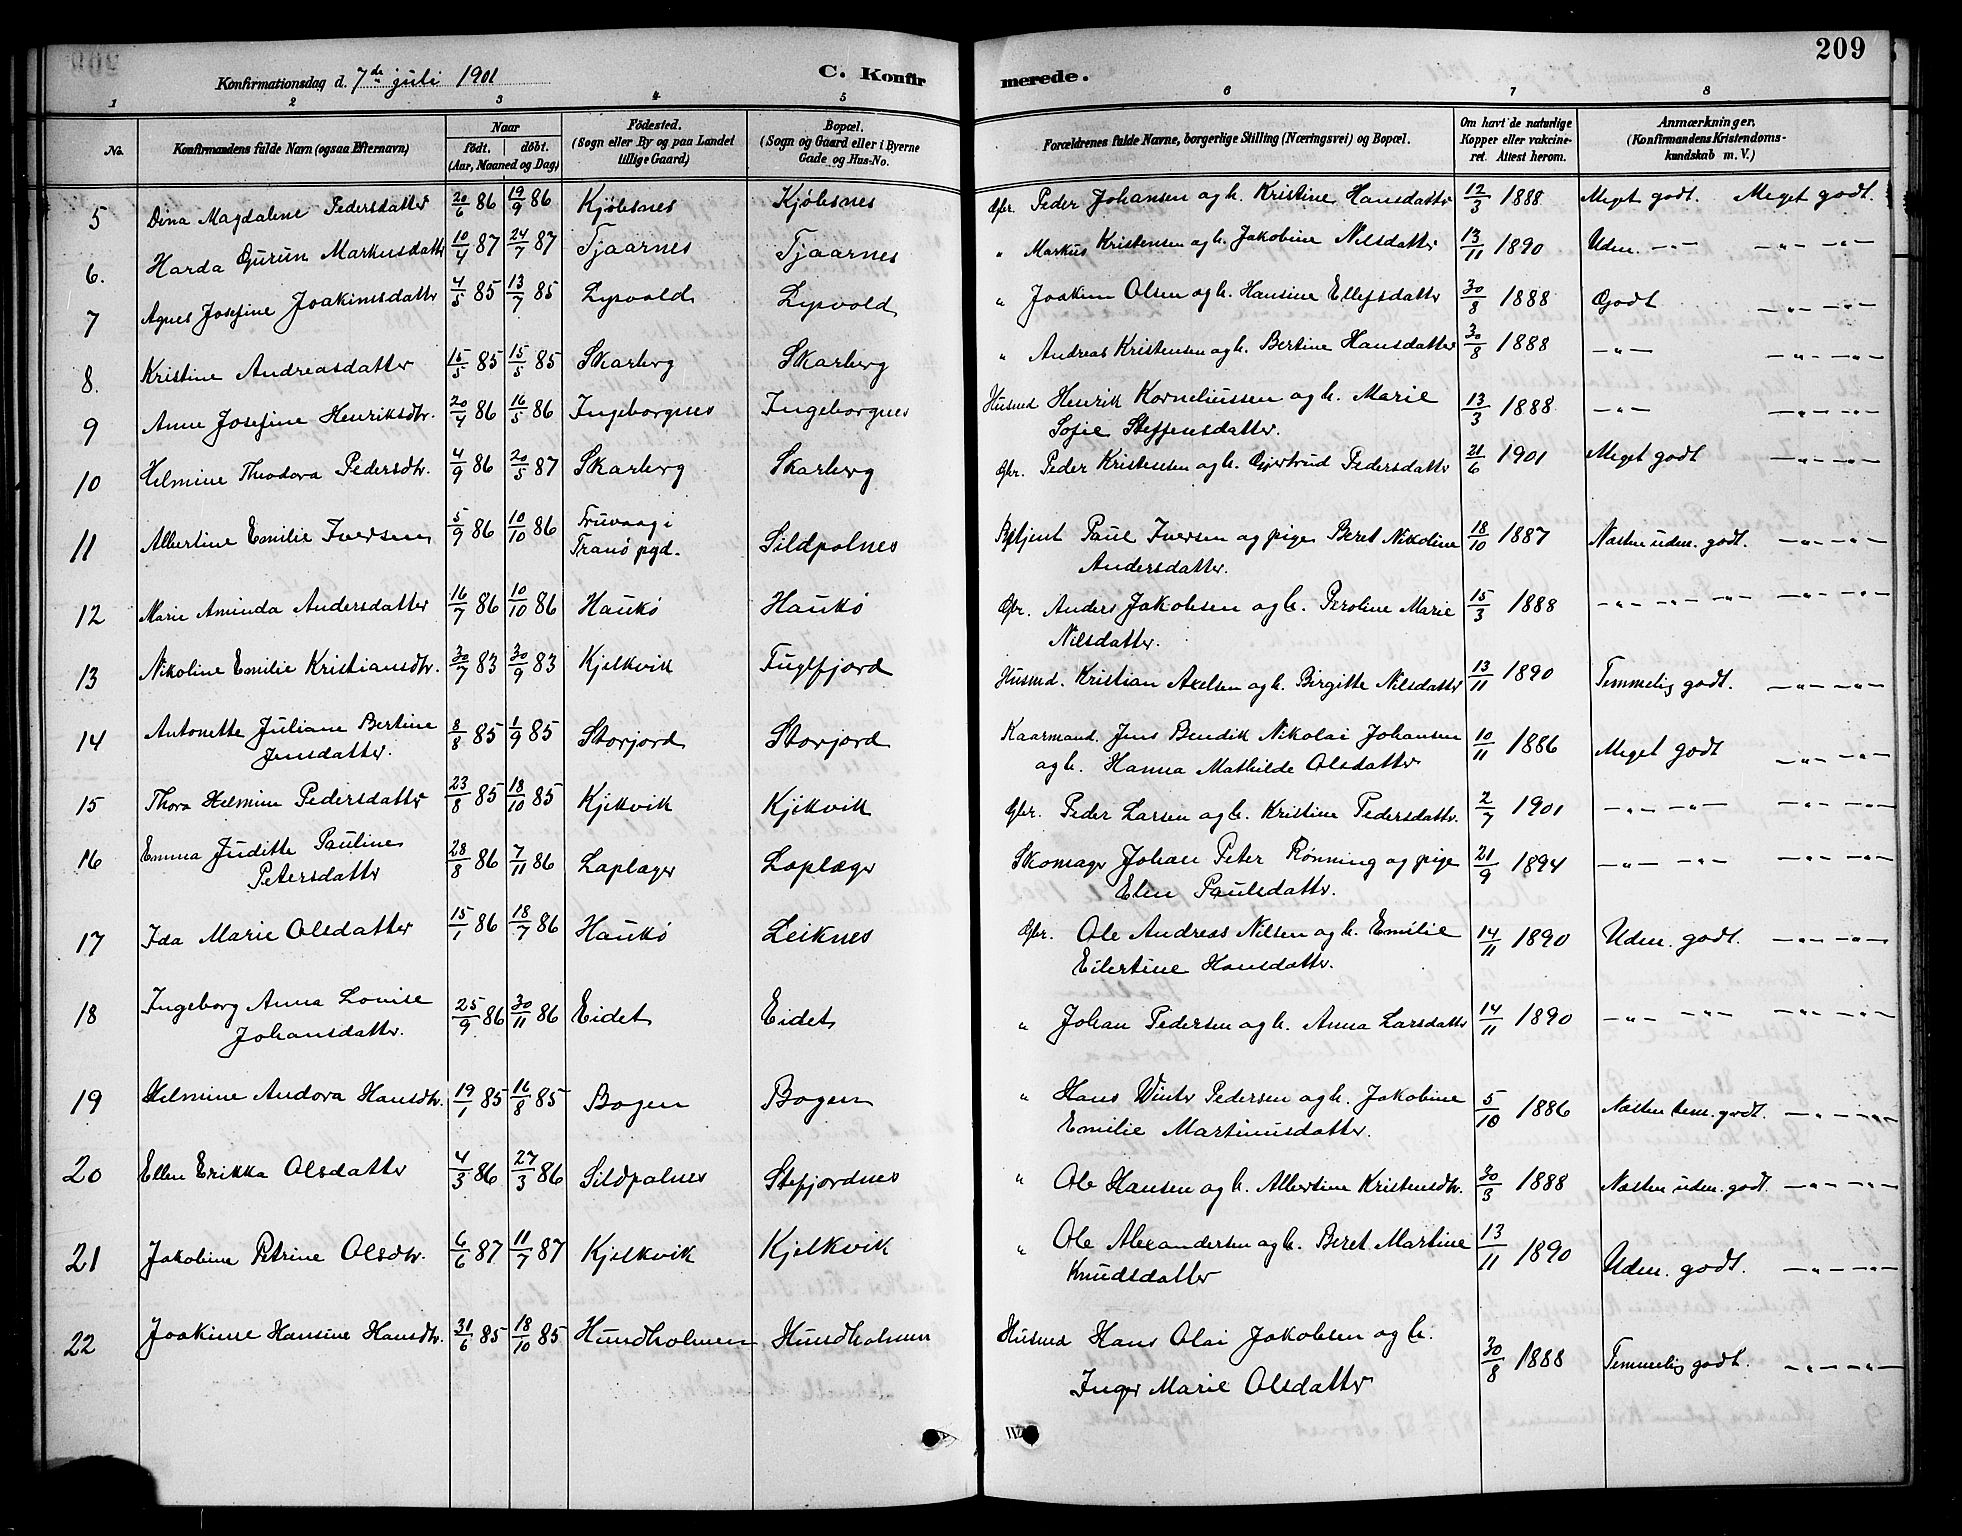 209
Konfirmationsdag d. 7de juli 1901 C. Konfirmerede.
1 2 3 4 5 6 7 8
No. Konfirmandens fulde Navn (ogsaa Efternavn) Naar født. døbt. (Aar, Maaned og Dag) Fødested. (Sogn eller By og paa Landet tillige Gaard) Bopæl. (Sogn og Gaard eller i Byerne Gade og Hus-No. Forældrenes fulde Navne, borgerlige Stilling (Næringsvei) og Bopæl. Om havt de naturlige Kopper eller vakcineret. Attest herom. Anmærkninger. (Konfirmandens Kristendomskundskab m. V.)
5 Dina Magdalene Pedersdatter 20/6 86 19/9 86 Kjøbsnes Kjøbsnes Gbr. Peder Johansen og h. Kristine Hansdatter 12/3 1888 Meget godt. Meget godt.
6. Harda Gurun Markusdatter 10/4 87 24/7 87 Tjaarnes Tjaarnes " Markus Kristensen og h. Jakobine Nilsdatter 13/11 1890 Uden. —"— —"— —"—
7 Agnes Josefine Joakimsdatter 4/5 85 13/7 85 Lysvold Lysvold " Joakim Olsen og h. Hansine Ellefsdatter 30/8 1888 Godt —"— —"—
8. Kristine Andreasdatter 15/5 85 15/5 85 Skarberg Skarberg " Andreas Kristensen og h. Bertine Hansdatter 30/8 1888 —"— —"— —"—
9 Anne Josefine Henriksdtr. 20/4 86 16/5 86 Ingeborgnes Ingeborgnes Husmd Henrik Korneliussen og h. Marie
Sofie Steffensdatter. 13/3 1888 —"— —"— —"—
10 Helmine Theodora Pedersdtr. 4/9 86 20/5 87 Skarberg Skarberg Gbr. Peder Kristensen og h. Gjertrud Pedersdatter 21/6 1901 Meget godt —"— —"—
11 Albertine Emilie Iversen 5/9 86 10/10 86 Truvaag i
Tranø pgd. Sildpolnes Paul Iversen og pige Beret Nikoline
Andersdatter. 18/10 1887 Næsten uden. godt. —"— —"—
12 Marie Aminda Andersdatter 16/7 86 10/10 86 Haukø Haukø Gbr. Anders Jakobsen og h. Peroline Marie
Nilsdatter. 15/3 1888 —"— —"— —"— —"—
13 Nikoline Emilie Kristiansdtr. 30/7 83 30/9 83 Kjelkvik Fuglfjord Husmd. Kristian Axelsen og h. Birgitte Nilsdatter 13/11 1890 Temmelig godt. —"— —"—
14 Antonette Juliane Bertine
Jensdatter. 8/8 85 1/9 85 Storjord Storjord Kaarmand. Jens Bendik Nikolai Johansen
og h. Hanna Mathilde Olsdatter 10/11 1886 Meget godt —"— —"—
15 Thora Helmine Pedersdatter 23/8 85 18/10 85 Kjikvik Kjikvik Gbr. Peder Larsen og h. Kristine Pedersdatter. 2/7 1901 —"— —"— —"— —"—
16 Emma Juditte Pauline
Petersdatter 28/8 86 7/11 86 Laplæger Laplæger Skomager Johan Peter Rønning og pige
Elen Paulsdatter. 21/9 1894 —"— —"— —"— —"—
17 Ida Marie Olsdatter 15/1 86 18/7 86 Haukø Leiknes Gbr. Ole Andreas Nilsen og h. Emilie
Eilertine Hansdatter. 14/11 1890 Uden. godt. —"— —"—
18 Ingeborg Anna Lovise
Johansdatter. 25/9 86 30/11 86 Eidet Eidet " Johan Pedersen og h. Anna Larsdatter 14/11 1890 —"— —"— —"— —"—
19 Helmine Andora Hansdtr. 19/1 85 16/8 85 Bogen Bogen " Hans Winter Pedersen og h. Jakobine
Emilie Martinusdatter. 5/10 1886 Næsten tem. godt. —"— —"—
20 Ellen Erikka Olsdatter 4/3 86 27/3 86 Sildpolnes Stefjordnes " Ole Hansen og h. Albertine Kristensdtr. 30/3 1888 Næsten uden. godt. —"— —"—
21 Jakobine Petrine Olsdtr. 6/6 87 11/7 87 Kjelkvik Kjelkvik " Ole Alexandersen og h. Beret Martine
Knudsdatter 13/11 1890 Uden. godt. —"— —"—
22 Joakime Hansine Hansdtr. 31/6 85 18/10 85 Hundholmen Hundholmen Husmd Hans Olai Jakobsen og h.
Inger Marie Olsdatter 30/8 1888 Temmelig godt. —"— —"—